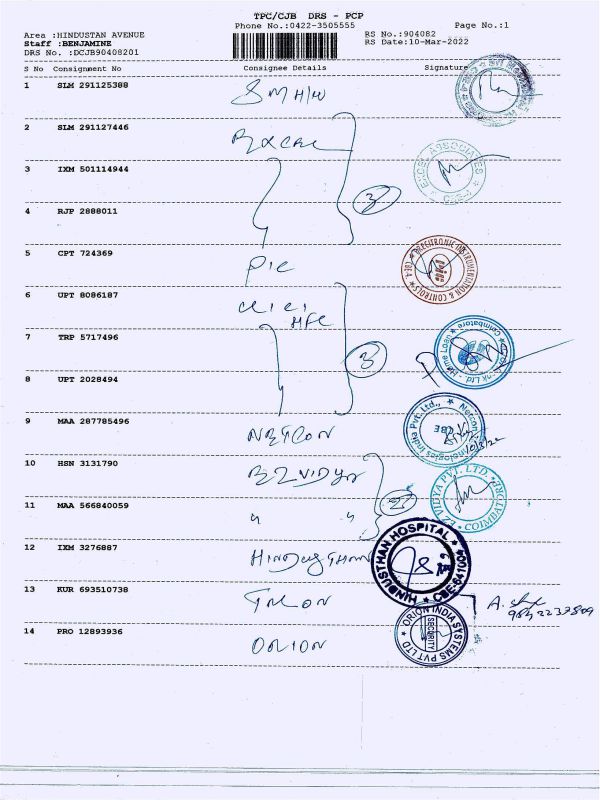 TPC/CJB DRS - PCP
Phone No.:0422-3505555 Page No.:1
Area :HINDUSTAN AVENUE RS No.:904082
Staff :BENJAMINE RS Date:10-Mar-2022
DRS No. :DCJB90408201
S No Consignment No Consignee Details Signature
1 SLM 291125388 SMH/W
2 SLM 291127446 EXCEL
EXCEL ASSOCIATES
3 IXM 501114944
3
4 RJP 2888011
5 CPT 724369 PIC
PRECITRONIC INSTRUMENTATION & CONTROLS CBE-4
6 UPT 8086187 ICICI HFC
7 TRP 5717496
3
Home Loan Coimbatore
8 UPT 2028494
9 MAA 287785496 NETCON
Netcon Technologies India Pvt. Ltd., CBE
10 HSN 3131790 EZVIDYA
EZ VIDYA PVT. LTD. COIMBATORE
2
11 MAA 566840059 " "
12 IXM 3276887 HINDUSTHAN
HINDUSTHAN HOSPITAL CBE-641004
13 KUR 693510738
ORION INDIA SYSTEMS PVT LTD SECURITY
14 PRO 12893936 ORION